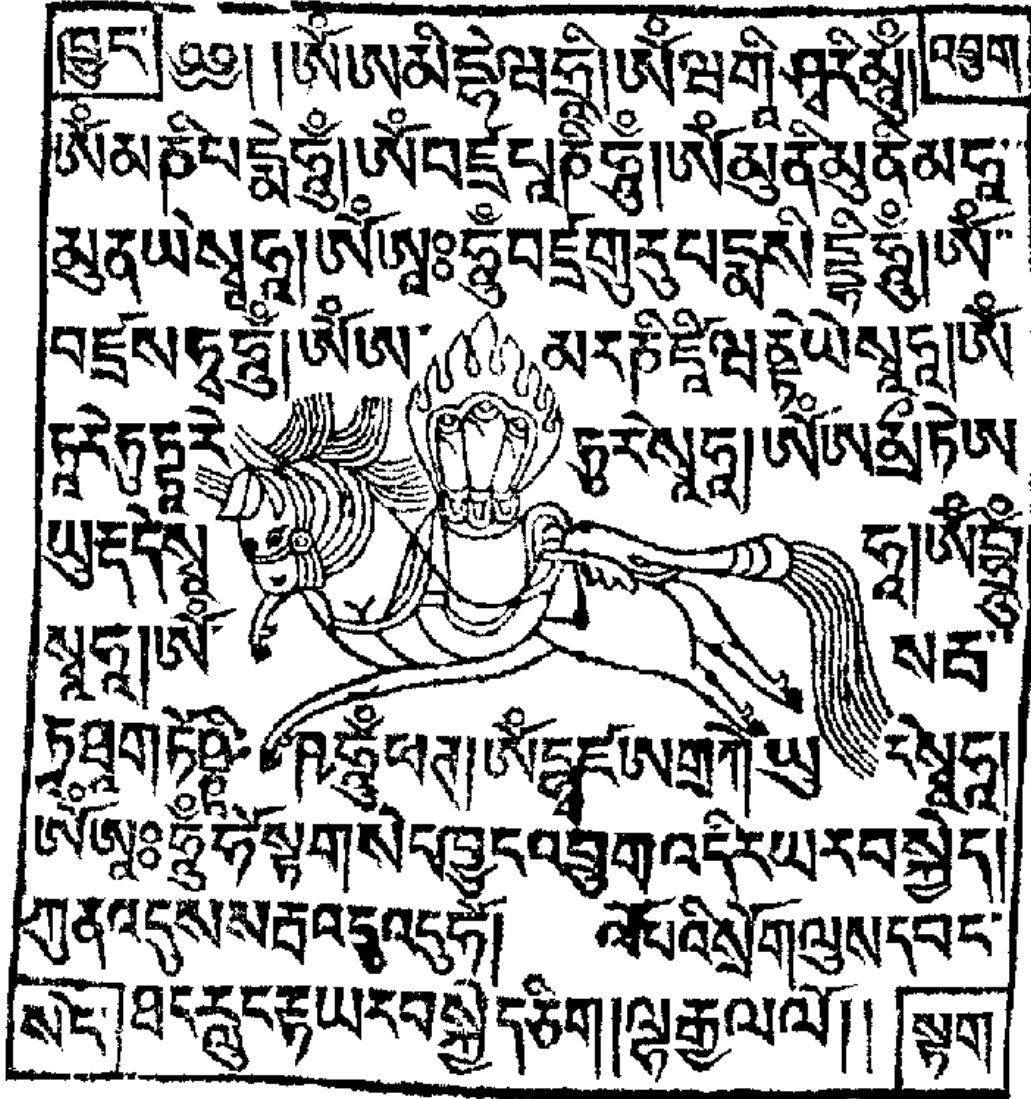 ཁྱུང་ ༄༅། །ཨོཾ་ཨ་མི་ དྷེ་ ཨོཾ་ཝ་གི་ཤྭ་རི་མུཾ། འབྲུག
ཨོཾ་མ་ཎི་པདྨེ་ཧཱུྃ། ཨོཾ་བཛྲ་པཱ་ཎི་ཧཱུྃ། ཨོཾ་མུ་ནི་མུ་ནི་མ་ཧཱ་
མུ་ན་ཡེ་སྭཱ་ཧཱ། ཨོཾ་ཨཱཿ་ཧཱུྃ་བཛྲ་གུ་རུ་པདྨ་སི་དྡྷི་ཧཱུྃ། ཨོཾ་
བཛྲ་ས་ཏྭ་ཧཱུྃ། ཨོཾ་ཨ་ མ་ར་ཎི་ཛཱི་ཝནྟི་ཡེ་སྭཱ་ཧཱ། ཨོཾ་
ཏཱ་རེ་ཏུ་ཏྟཱ་རེ་ ཏུ་རེ་སྭཱ་ཧཱ། ཨོཾ་ཨ་མྲྀ་ཏེ་ཨ་
ཡུརྡ་དེ་སྭཱ་ ཧཱ། ཨོཾ་བྷྲཱུྃ་
སྭཱ་ཧཱ། ཨོཾ་ སརྦ་
ཧཱུྃ་ཕཊ། ཨོཾ་དྷྭ་ཛ་ཨ་གྲ་ཀེ་ཡུ་ ར་སྭཱ་ཧཱ།
ཨོཾ་ཨཱཿ་ཧཱུྃ་ཧོ་སྟག་སེང་ཁྱུང་འབྲུག་འདིར་ཡར་བསྐྱེད།
ཀུན་འདུས་ས་རྦ་འདུ་འདུ་ཧོ། ལོ་པའི་སྲོག་ལུས་དབང་
ཐང་རླུང་རྟ་ཡར་བསྐྱེད་ཅིག །ལྷ་རྒྱལ་ལོ།།
སེང་ སྟག